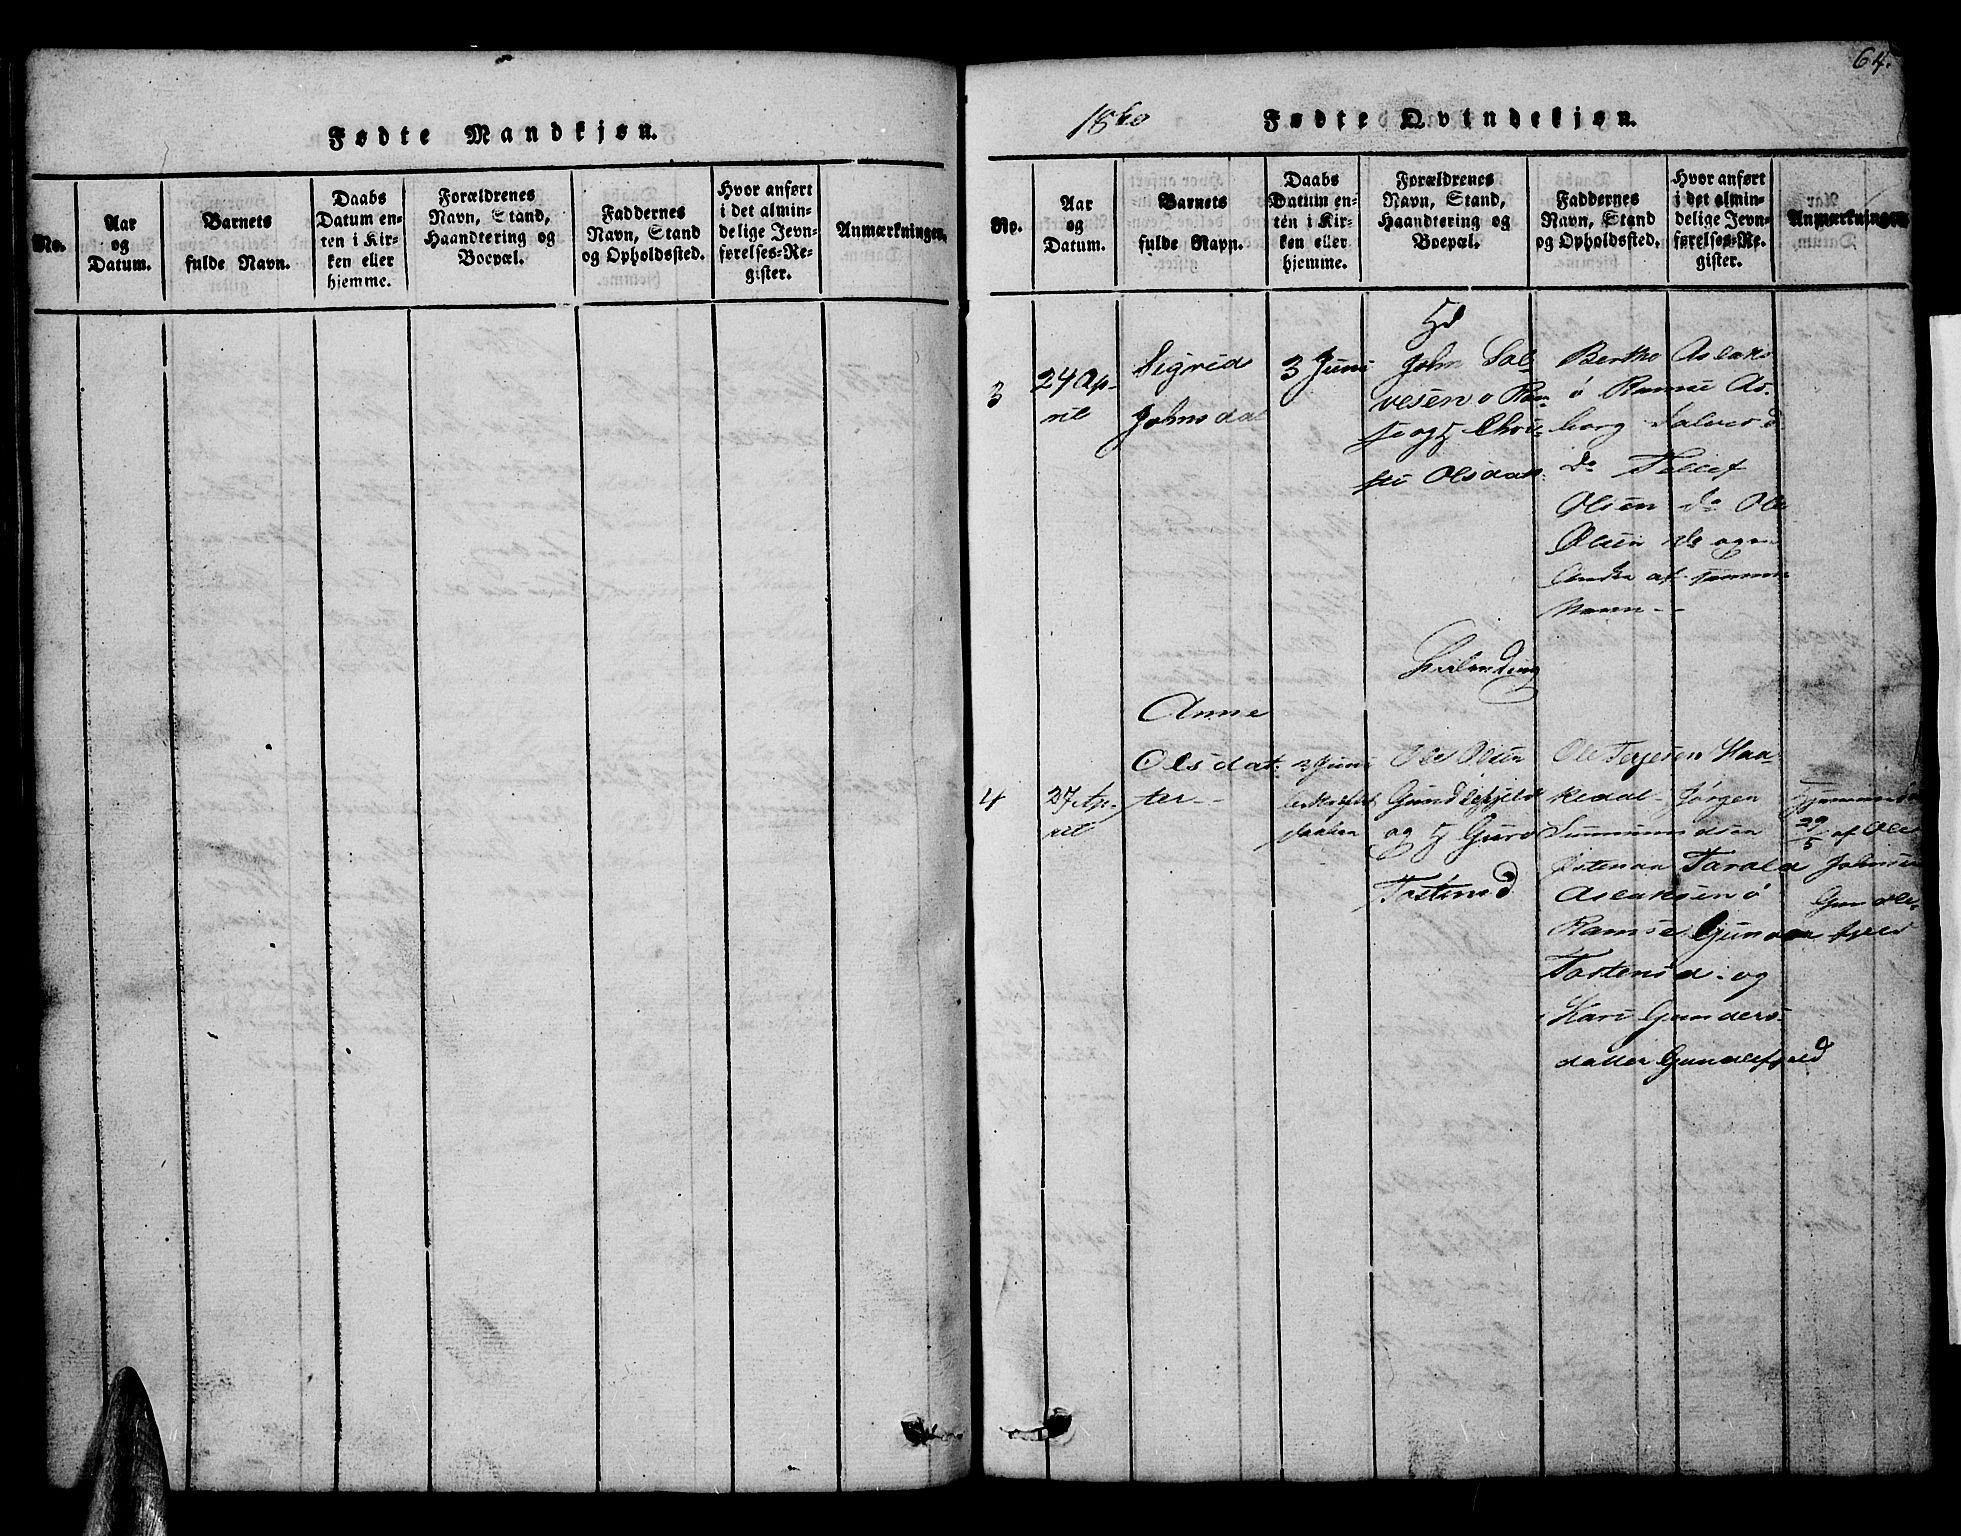 64.
Fødte Mandkjøn.
No.
Aar
og
Datum.
Barnets
fulde Navn.
Daabs
Datum en-
ten i Kir-
ken eller
hjemme.
Forældrenes
Navn, Stand,
Haandtering og
Boepæl.
Faddernes
Navn, Stand
og Opholdssted.
Hvor anført
i det almin-
delige Jevn-
førelses-Re-
gister.
Anmærkninger.
1860
Fødte Qvindekjøn.
No.
Aar
og
Datum.
Barnets
fulde Navn.
Daabs
Datum en-
ten i Kir-
ken eller
hjemme.
Forældrenes
Navn, Stand,
Haandtering og
Boepæl.
Faddernes
Navn, Stand
og Opholdssted.
Hvor anført
i det almin-
delige Jevn-
førelses-Re-
gister.
Anmærkninger.
3
24 Ap-
ril
Sigrid
Johnsdat
3 Juni
John Sal-
vesen ø Ram-
se og
Olsdatt.
Aslaks
ø Ramse As-
borg Salves d
do Tellef
Olsen do Ole
Olsen do og
Andre af samme
Navn -
4
27 Ap-
ril
Anne
Olsdat-
ter -
3 Juni
Ole Olsen
og Guro
Tostensd
Ole Terjesen Haa-
kedal - Jørgen
Tarald
Aslaksen ø
Ramse Gunar
Tostensd - og
Kari Gunders-
datter Gundlefjeld
29/5 af Ole
Johnsen
Gundle-
fjeld